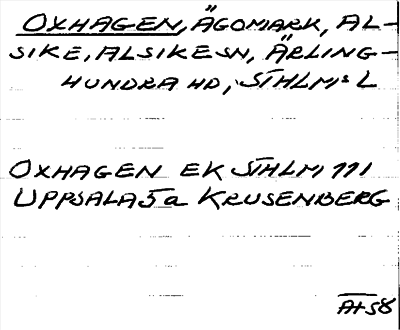 OXHAGEN, ÄGOMARK, AL-
SIKE, ALSIKE SN, ÄRLING-
HUNDRA HD, STHLMS L
OXHAGEN EK STHLM 111
UPPSALA 5a KRUSENBERG
AH 58